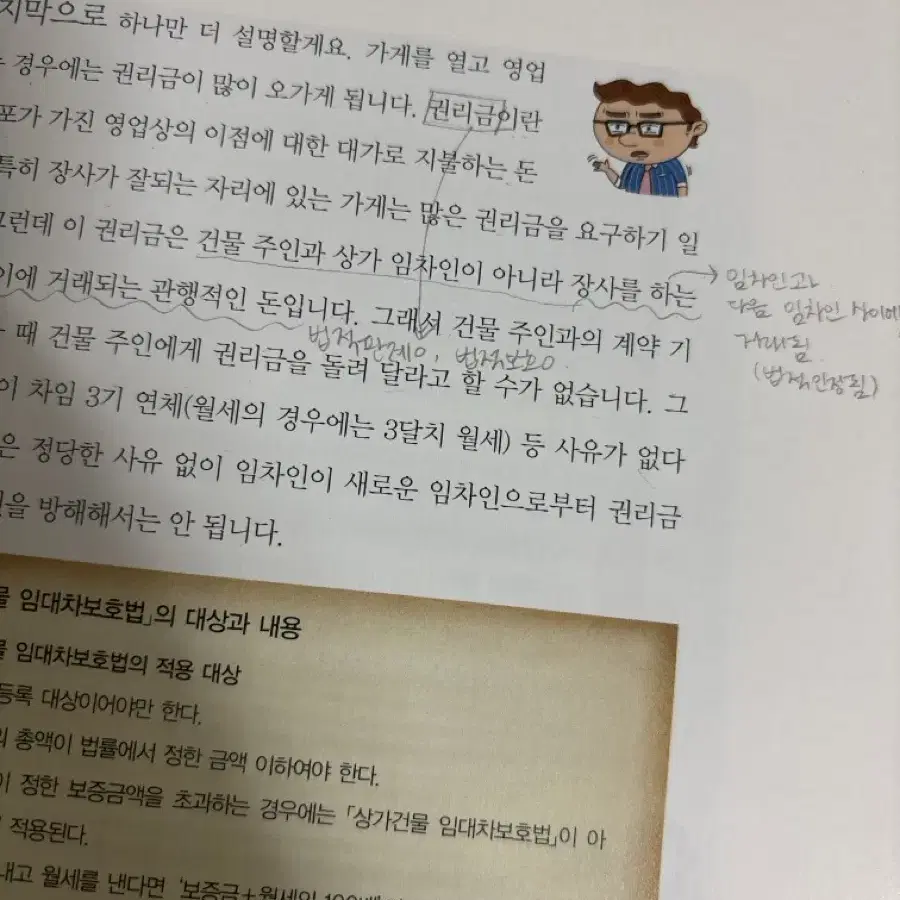 지막으로 하나만 더 설명할게요. 가게를 열고 영업
는 경우에는 권리금이 많이 오가게 됩니다. 권리금이란
포가 가진 영업상의 이점에 대한 대가로 지불하는 돈
특히 장사가 잘되는 자리에 있는 가게는 많은 권리금을 요구하기 일
그런데 이 권리금은 건물 주인과 상가 임차인이 아니라 장사를 하는
이에 거래되는 관행적인 돈입니다. 그래서 건물 주인과의 계약 기
때 건물 주인에게 권리금을 돌려 달라고 할 수가 없습니다. 그
이 차임 3기 연체(월세의 경우에는 3달치 월세) 등 사유가 없다
은 정당한 사유 없이 임차인이 새로운 임차인으로부터 권리금
을 방해해서는 안 됩니다.
임차인과
다음 임차인 사이에
거래됨
(법적인정됨)
법적관계O, 법적보호O
물 임대차보호법」의 대상과 내용
물 임대차보호법의 적용 대상
등록 대상이어야만 한다.
의 총액이 법률에서 정한 금액 이하여야 한다.
이 정한 보증금액을 초과하는 경우에는 「상가건물 임대차보호법」이 아
적용된다.
내고 월세를 낸다면 '보증금+월세의 100배